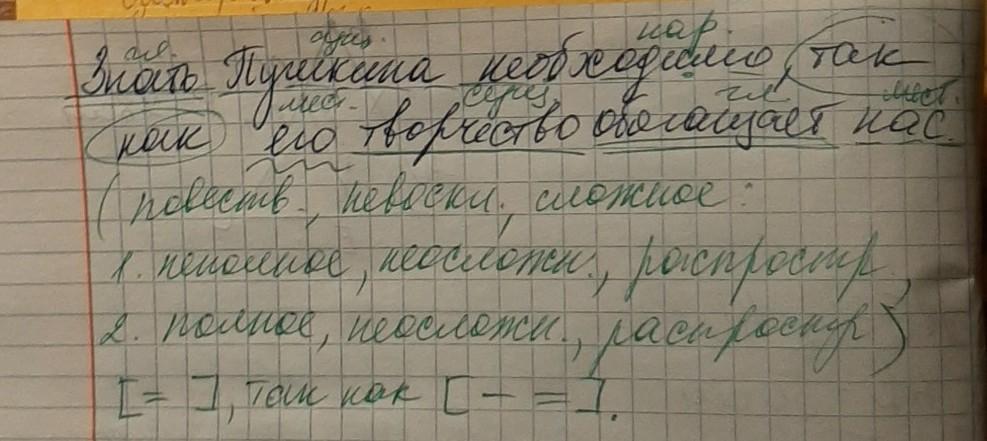 гл. сущ. нар.
Знать Пушкина необходимо, так
мест. сущ гл мест.
как его творчество обогащает нас.
(повеств., невоскл., сложное:
1. неполное, неосложн., распростр,
2. полное, неосложн., распростр)
[= ], так как [— =].